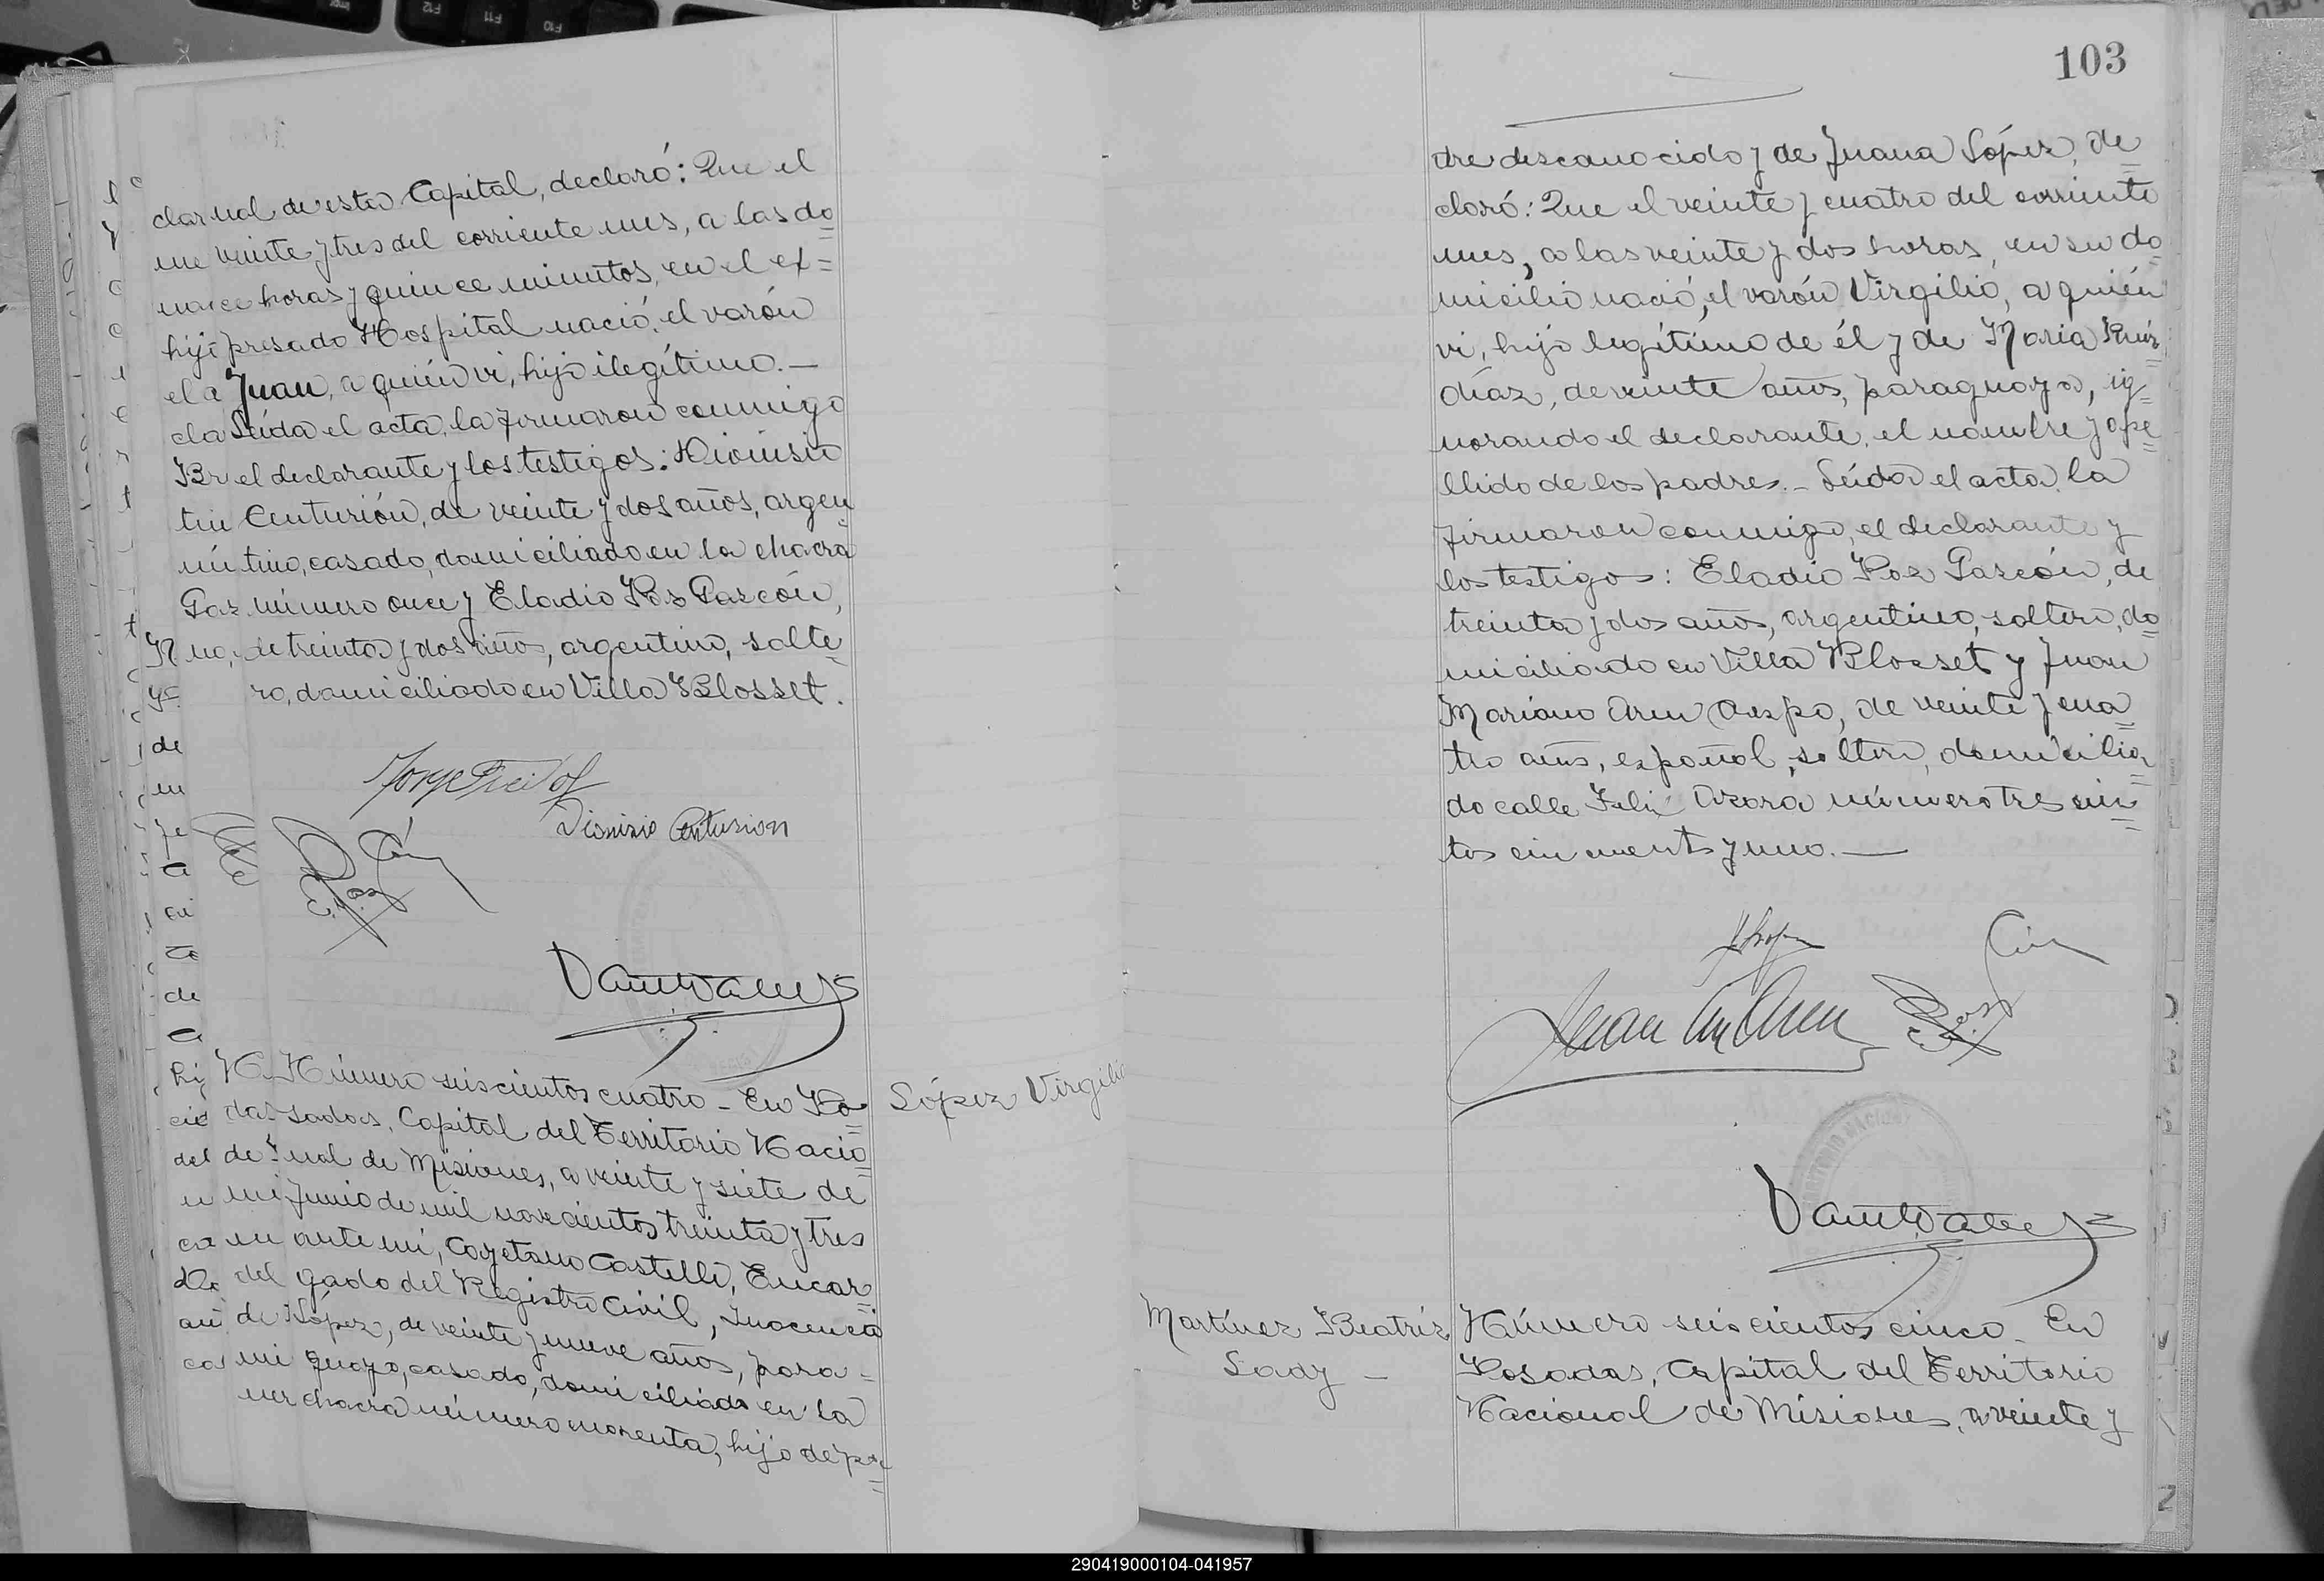 nal de esta Capital, declaró: Que el
veinte y tres del corriente mes, a las do
ce horas y quince minutos, en el ex=
presado Hospital nació, el varón
Juan, a quién vi, hijo ilegítimo.—
Leída el acta, la firmaron conmigo
el declarante y los testigos: Dionisio
Centurión, de veinte y dos años, argen
tino, casado, domiciliado en la chacra
número once y Eladio Poz Garcón,
de treinta y dos años, argentino, solte
ro, domiciliado en Villa Blosset.
Dionisio Centurion
Número seiscientos cuatro - En Po
sadas, Capital del Territorio Nacio
nal de Misiones, a veinte y siete de
Junio de mil novecientos treinta y tres
ante mí, Cayetano Castelli, Encar
gado del Registro Civil, Inocencio
López, de veinte y nueve años, para=
guayo, casado, domiciliado en la
chacra número noventa, hijo de pa
López Virgilio
103
dre desconocido y de Juana López, de
claró: Que el veinte y cuatro del corriente
mes, a las veinte y dos horas, en su do
micilio nació, el varón Virgilio, a quién
vi, hijo legítimo de él y de Maria Ruiz
díaz, de veinte años, paraguaya, ig
norando el declarante, el nombre y ape
llido de los padres.- Leída el acta, la
firmaron conmigo, el declarante y
los testigos: Eladio Poz Garcón, de
treinta y dos años, argentino, soltero, do
miciliado en Villa Blosset y Juan
Mariano Aren Crespo, de veinte y cua
tro años, español, soltero, domicilia
do calle Felix Azara número trescien
tos cincuenta y uno.—
Martínez Beatriz
Lady -
Número seiscientos cinco - En
Posadas, Capital del Territorio
Nacional de Misiones, a veinte y
290419000104-041957